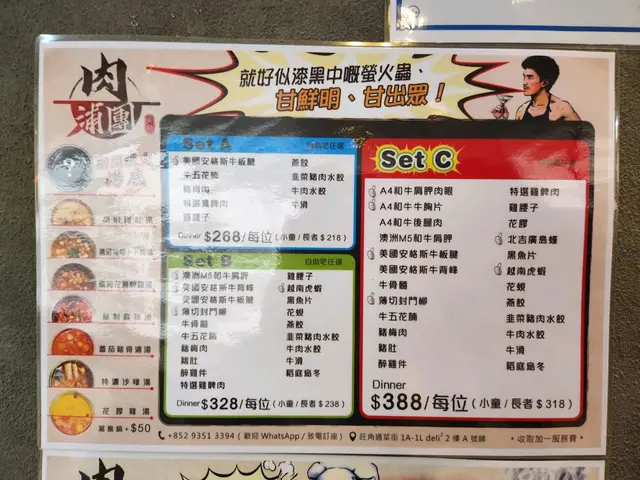 肉蒲團
就好似漆黑中嘅螢火蟲、
甘鮮明、甘出眾！
湯底
番茄豬骨湯
特濃沙嗲湯
花膠雞湯
鴛鴦鍋+$50
Set A
自助吧任選
美國安格斯牛板腱
牛五花腩
豬梅肉
特選雞髀肉
雞腰子
燕餃
韮菜豬肉水餃
牛肉水餃
牛滑
Dinner $268/每位（小童/長者 $218）
Set B
自助吧任選
澳洲M5和牛肩胛
美國安格斯牛背峰
美國安格斯牛板腱
薄切封門柳
牛骨髓
牛五花腩
豬梅肉
豬肚
醉雞件
特選雞髀肉
雞腰子
越南虎蝦
黑魚片
花蜆
燕餃
韮菜豬肉水餃
牛肉水餃
牛滑
稻庭島冬
Dinner $328/每位（小童/長者 $238）
Set C
自助吧任選
A4和牛肩胛肉眼
A4和牛牛胸片
A4和牛後腿肉
澳洲M5和牛肩胛
美國安格斯牛板腱
美國安格斯牛背峰
牛骨髓
薄切封門柳
牛五花腩
豬梅肉
豬肚
醉雞件
特選雞髀肉
雞腰子
花膠
北吉廣島蠔
黑魚片
越南虎蝦
花蜆
燕餃
韮菜豬肉水餃
牛肉水餃
牛滑
稻庭島冬
Dinner
$388/每位（小童/長者 $318）
+852 9351 3394（歡迎 WhatsApp / 致電訂座）
旺角通菜街 1A-1L deli² 2 樓 A 號舖
*收取加一服務費*
肉